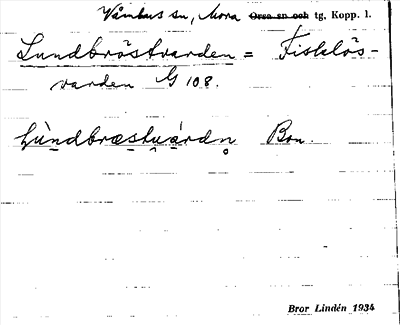 Våmhus sn, Mora Orsa sn och tg, Kopp. l.
Lundbröstvarden = Fisklös-
varden G 108.
lùndbræstwárdn̥ Bon.
Bror Lindén 1934